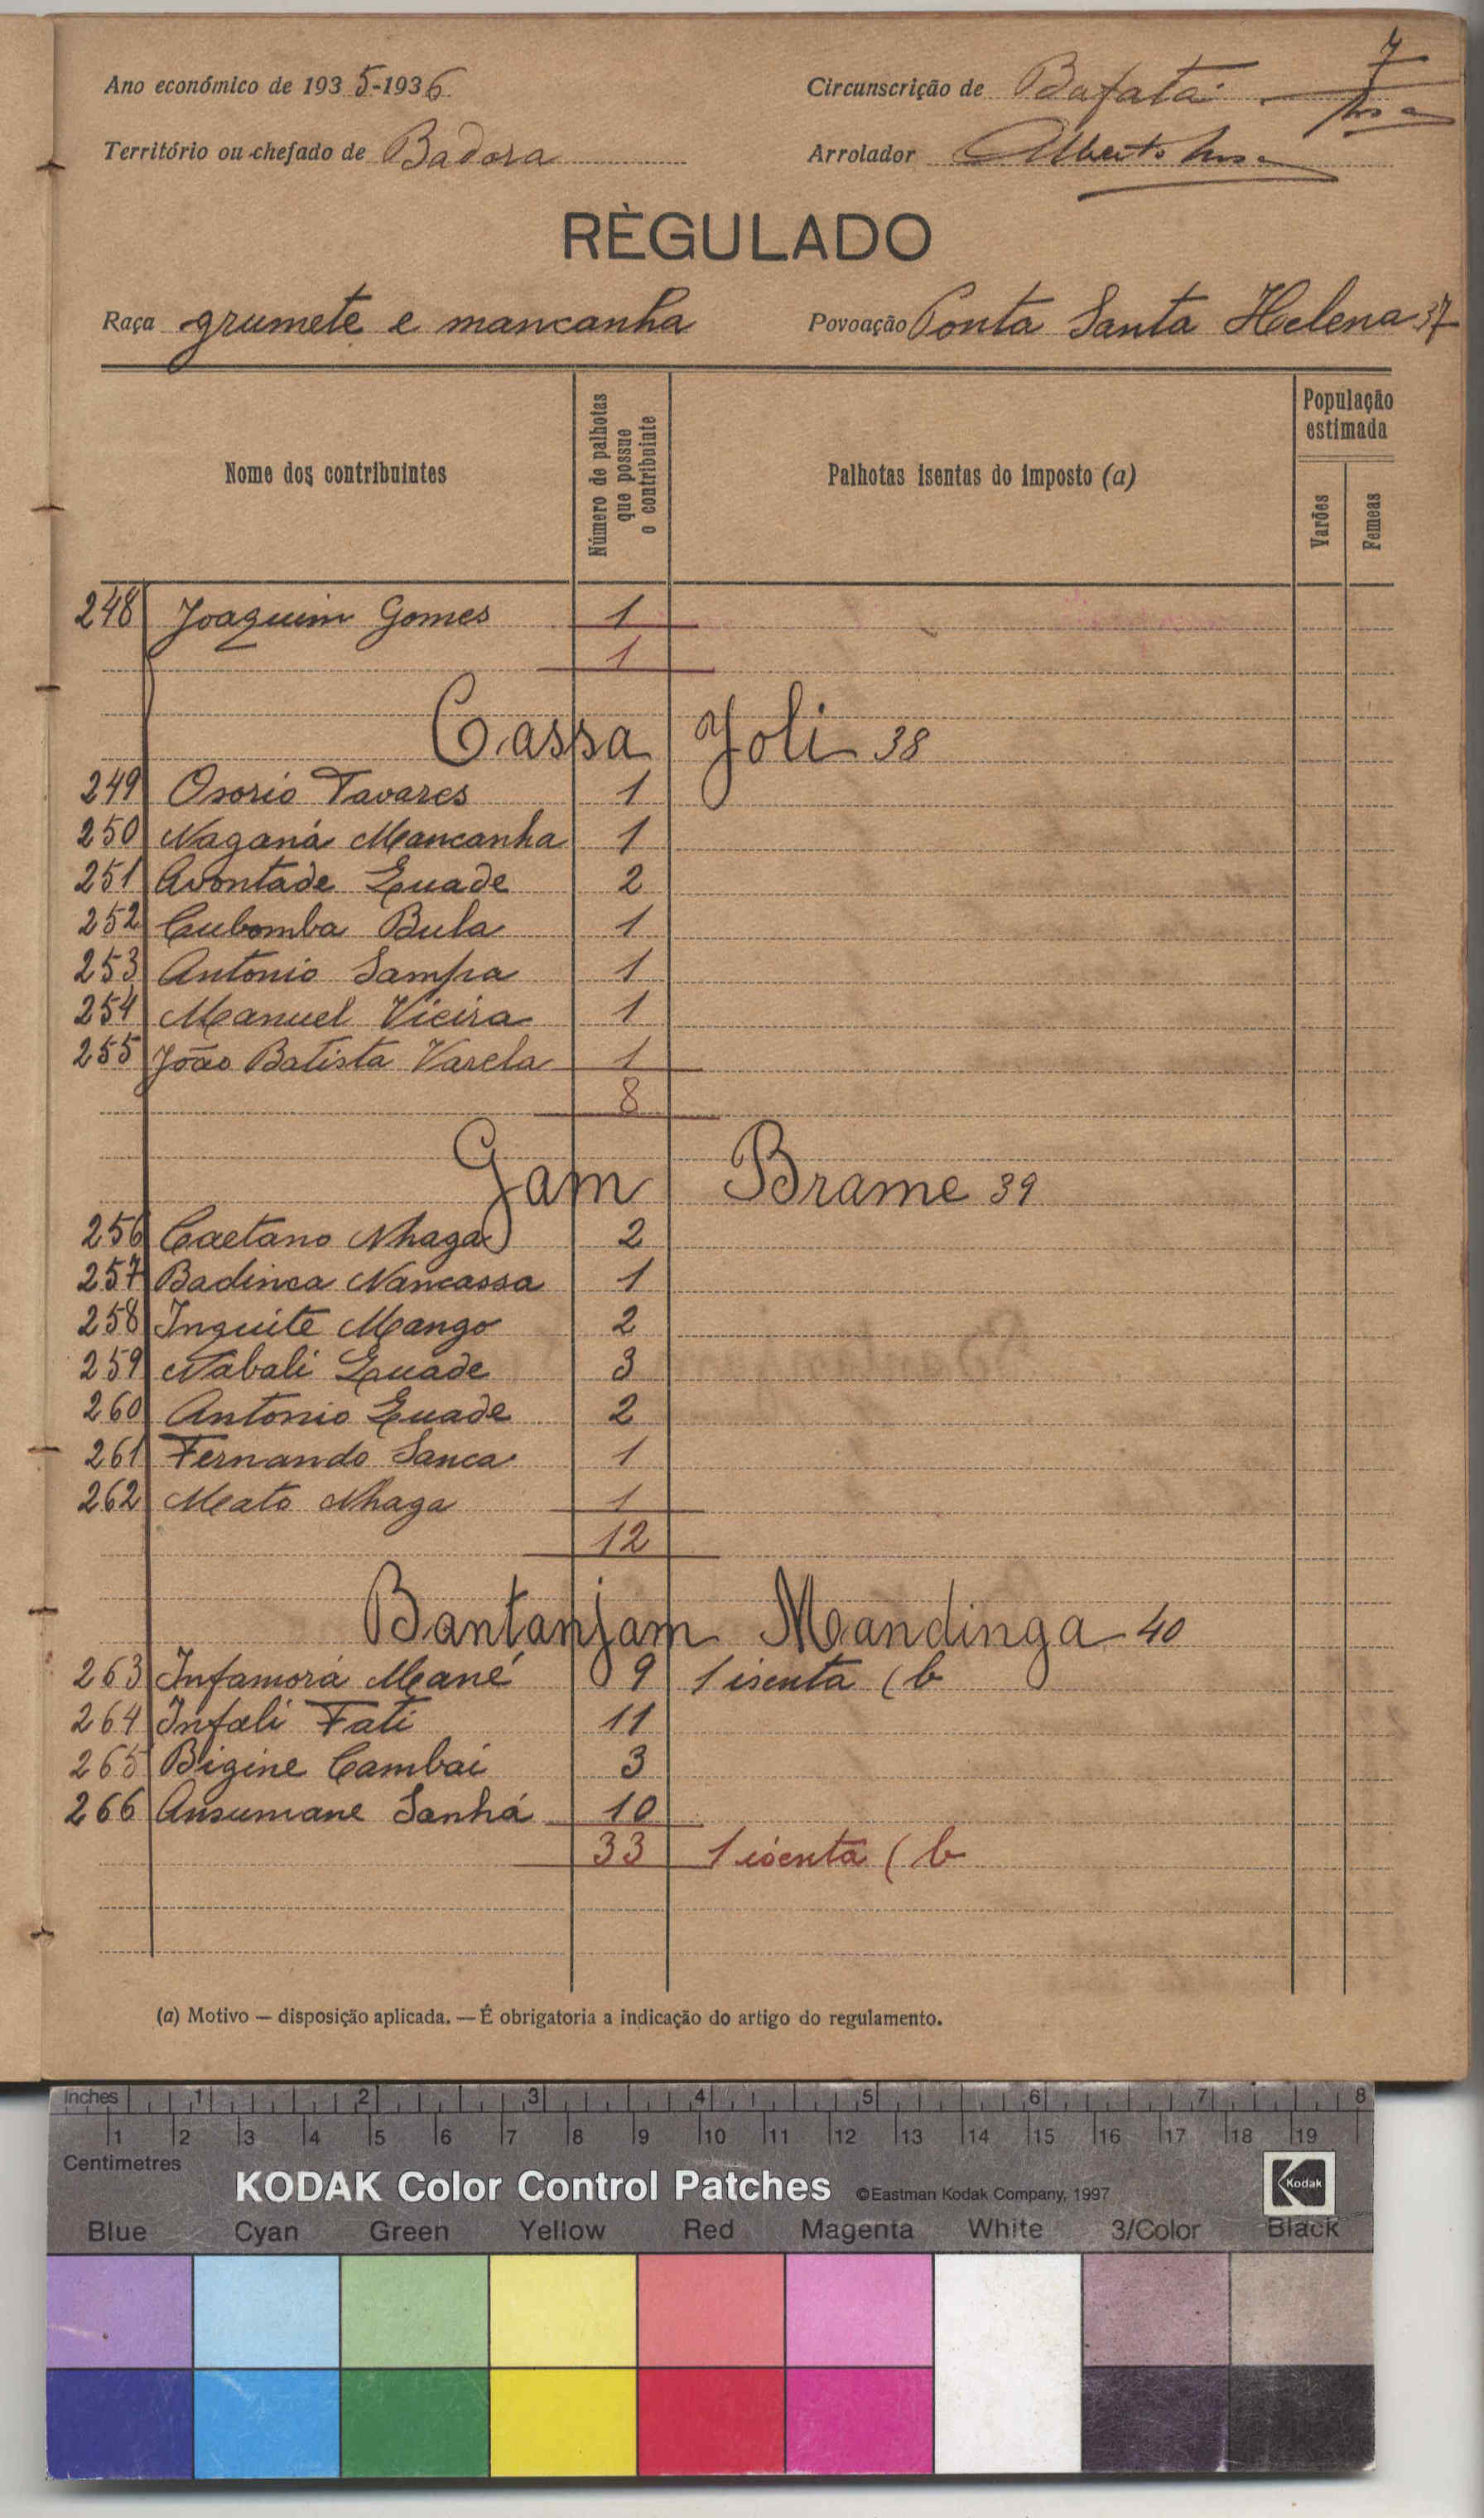 7
Ano económico de 1935-1936 Circunscrição de Bafatá
Território ou chefado de Badora Arrolador Alberto
RÈGULADO
Raça grumete e mancanha Povoação Ponta Santa Helena 37
Nome dos contribuintes
Número de palhotas que possue o contribuinte
Palhotas isentas do imposto (a)
População estimada
Varões
Femeas
248 Joaquim Gomes 1
1
Cassa Joli 38
249 Osorio Tavares 1
250 Naganá Mancanha 1
251 Avontade Quade 2
252 Cubomba Bula 1
253 Antonio Sampa 1
254 Manuel Vieira 1
255 João Batista Varela 1
8
Gam Brame 39
256 Caetano Nhaga 2
257 Badinca Nancassa 1
258 Inquite Mango 2
259 Nabali Quade 3
260 Antonio Quade 2
261 Fernando Sanca 1
262 Mato Nhaga 1
12
Bantanjam Mandinga 40
263 Infamorá Mané 9 1 isenta (b
264 Infali Fati 11
265 Bigine Cambai 3
266 Ansumane Sanhá 10
33 1 isenta (b
(a) Motivo — disposição aplicada. — É obrigatoria a indicação do artigo do regulamento.
Inches 1 2 3 4 5 6 7 8
1 2 3 4 5 6 7 8 9 10 11 12 13 14 15 16 17 18 19
Centimetres
KODAK Color Control Patches ©Eastman Kodak Company, 1997 Kodak
Blue Cyan Green Yellow Red Magenta White 3/Color Black